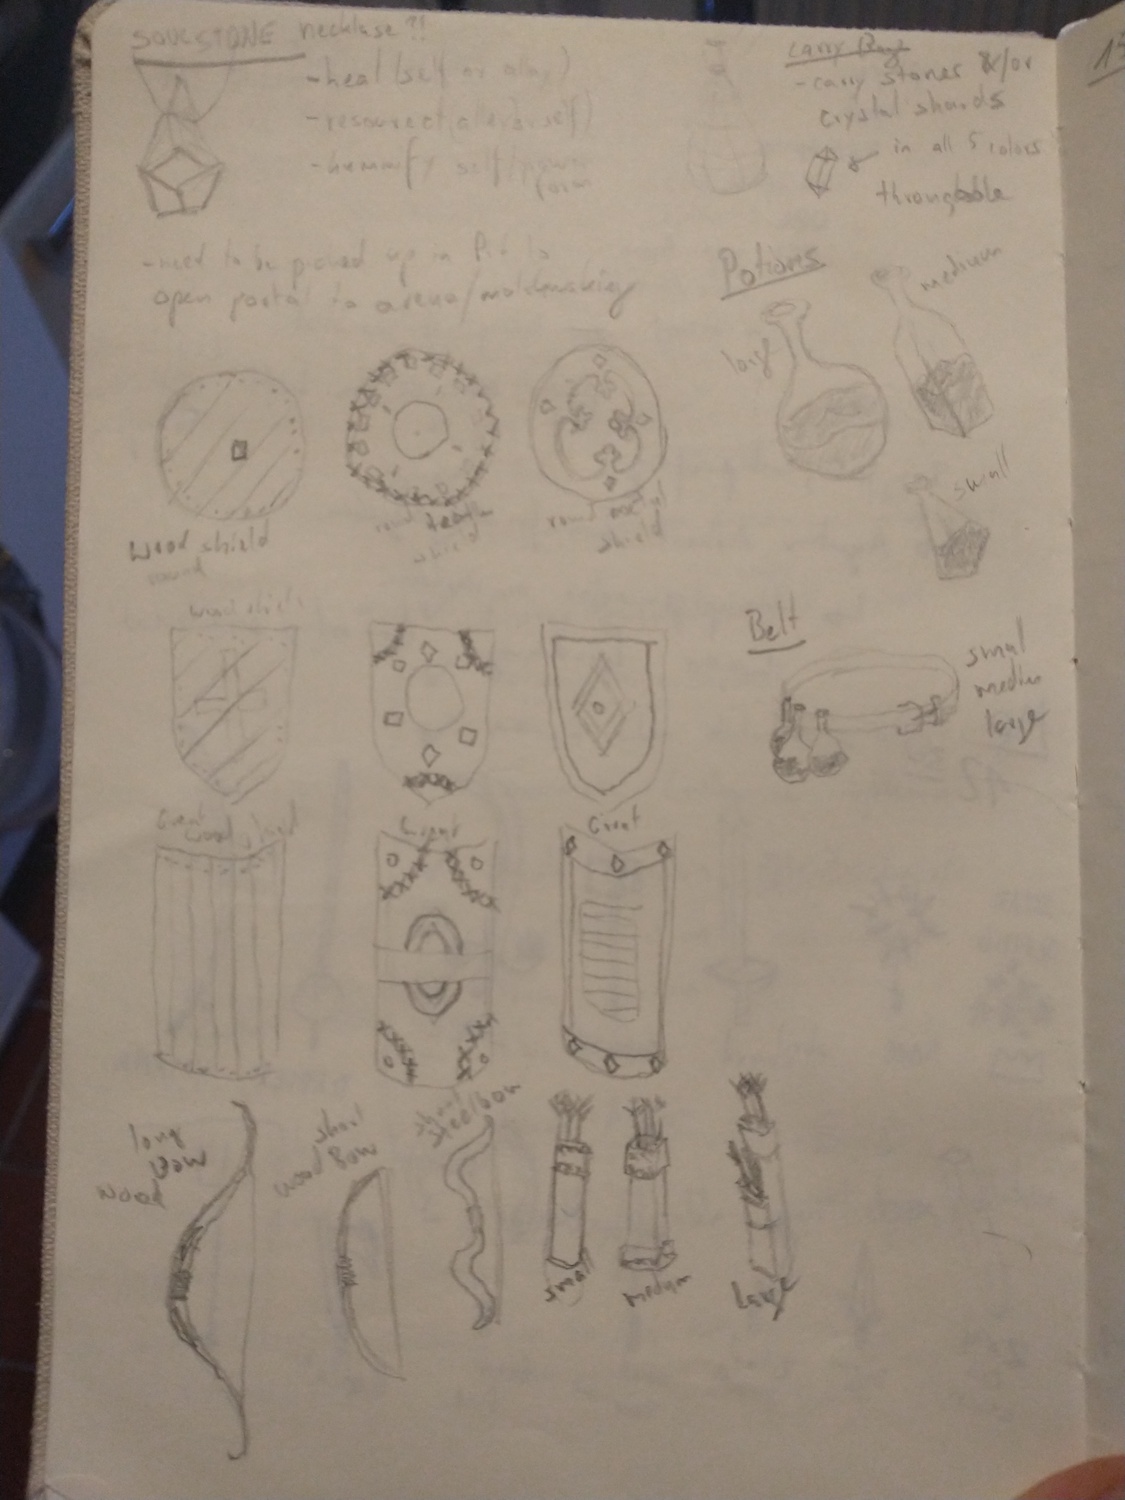 SOULSTONE necklase?!
-heal (self or alley)
-resourect
self
-need to be picked up in Pit to
open portal to arena/matchmaking
Carry Bag
-carry stones &/or
crystal shards
in all 5 colors
Potions
medium
small
wood shield
round
round
shield
round metal
shield
wood shield
Belt
small
medium
large
wood
long
Bow
wood
short
wood Bow
short
steelbow
small
medium
Large